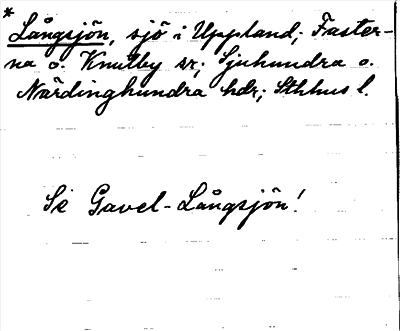 * Långsjön, sjö i Uppland; Faster-
na o. Knutby sr; Sjuhundra o.
Närdinghundra hdr; Sthlms l.
Se Gavel-Långsjön!